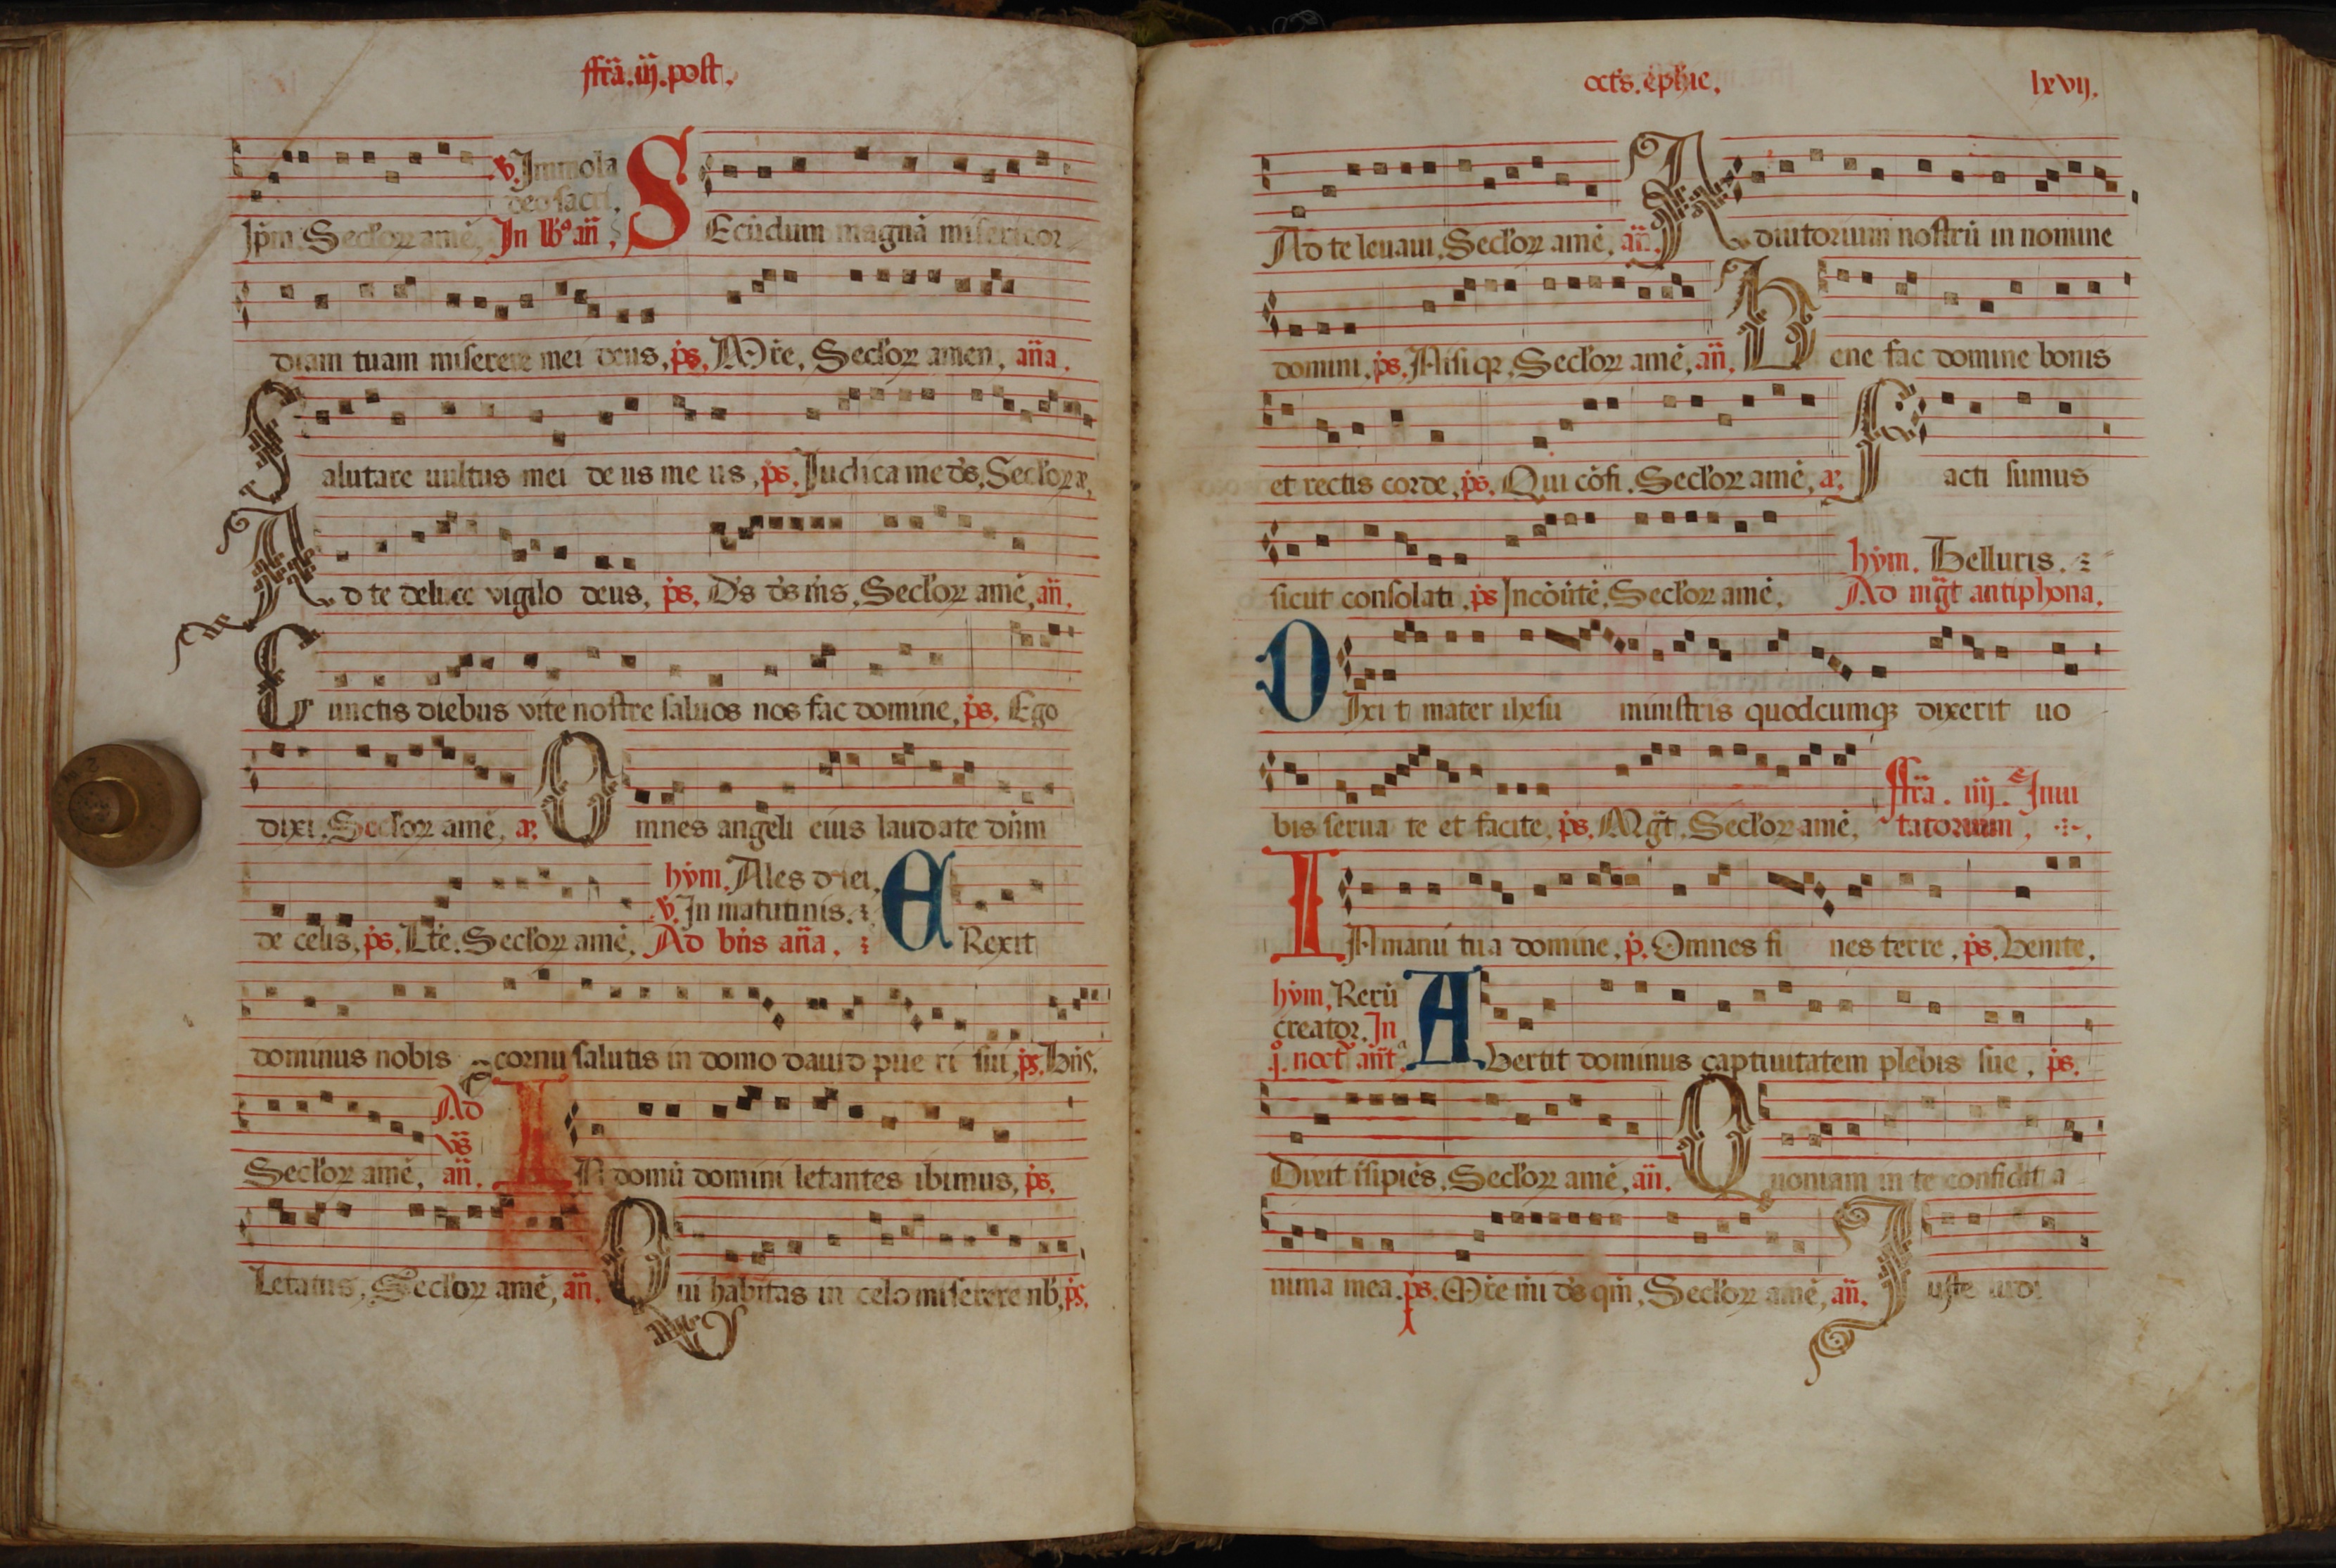 ffrã.iij.post.
v. Immola
deo sacri.
Ip̄m. Sec̄lorꝝ amē. In lb̾ an̄. S Ecūdum magnā misericor
diam tuam miserere mei deus. ps. Mr̄e. Sec̄lorꝝ amen. an̄a.
S alutare uultus mei deus meus. ps. Iudica me ds̄. Sec̄lorꝝ
A d te de luce vigilo deus. ps. Ds̄ ds̄ ms̄. Sec̄lorꝝ amē. an̄.
C unctis diebus vite nostre saluos nos fac domine. ps. Ego
dixi. Sec̄lorꝝ amē. O mnes angeli eius laudate dn̄m
hym. Ales diei.
v. In matutinis.
de celis. ps. Lt̄e. Sec̄lorꝝ amē. Ad bn̄s an̄a. E Rexit
dominus nobis cornu salutis in domo dauid pueri sui. ps. Bn̄s.
Ad
vs̄
Sec̄lorꝝ amē. an̄. I N domū domini letantes ibimus. ps.
Letatus. Sec̄lorꝝ amē. an̄. Q ui habitas in celo miserere nb̄. ps.
oct̄s. ēpħie. lxvij.
Ad te leuaui. Sec̄lorꝝ amē. an̄. A diutorium nostrū in nomine
domini. ps. Nisi qꝛ. Sec̄lorꝝ amē. an̄. B ene fac domine bonis
et rectis corde. ps. Qui cōfi. Sec̄lorꝝ amē. F acti sumus
hym. Telluris.
sicut consolati. ps In cōūtē. Sec̄lorꝝ amē. Ad mḡt antiphona.
D Ixit mater ihesu ministris quodcumqꝫ dixerit uo
ffrã. iiij. Inui
bis serua te et facite. ps. Mḡt. Sec̄lorꝝ amē. tatorium.
I N manū tua domine. p. Omnes fi nes terre. ps. Venite.
hym. Rerū
creator. In
j. noct̄ ant̄ A Vertit dominus captiuitatem plebis sue. ps.
Dixit īsipiēs. Sec̄lorꝝ amē. an̄. Q uoniam in te confidit a
nima mea. ps. Mr̄e mī ds̄ qm̄. Sec̄lorꝝ amē. an̄. I uste iudi